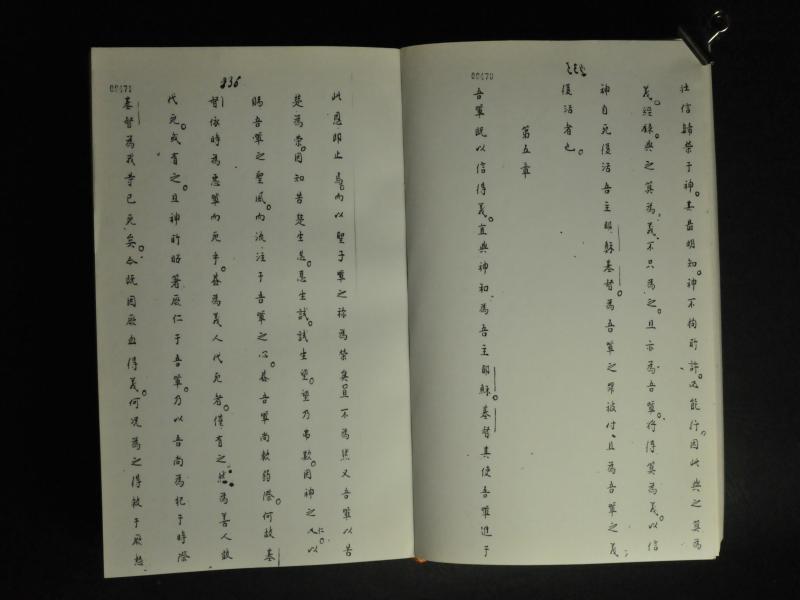 00470
仕信歸榮于神。其最明知。神不拘所許。必能行。因此與之算為
義。經錄與之算為義。不只為之。且亦為吾輩。將得算為義。以信
神自死復活吾主耶穌基督。為吾輩之罪被付、且為吾輩之義
復活者也。
第五章
吾輩既以信得義。宜與神和為吾主耶穌。基督其使吾輩進于
00471
836
此恩即止焉。而以聖子輩之禄為榮矣。且不為然又吾輩以苦
楚為榮。因知苦楚生忍。忍生試。試生望。望乃弗欺。因神之仁。以
賜吾輩之聖風。而流注于吾輩之心。葢吾輩尚軟弱際。何故基
督依時為惡輩而死乎。葢為義人代死者。僅有之。然為善人敢
代死。或有之。且神所昭著厥仁于吾輩。乃以吾尚為犯于時際
基督為我等已死矣。今既因厥血得義。何况為之得救于厥怒